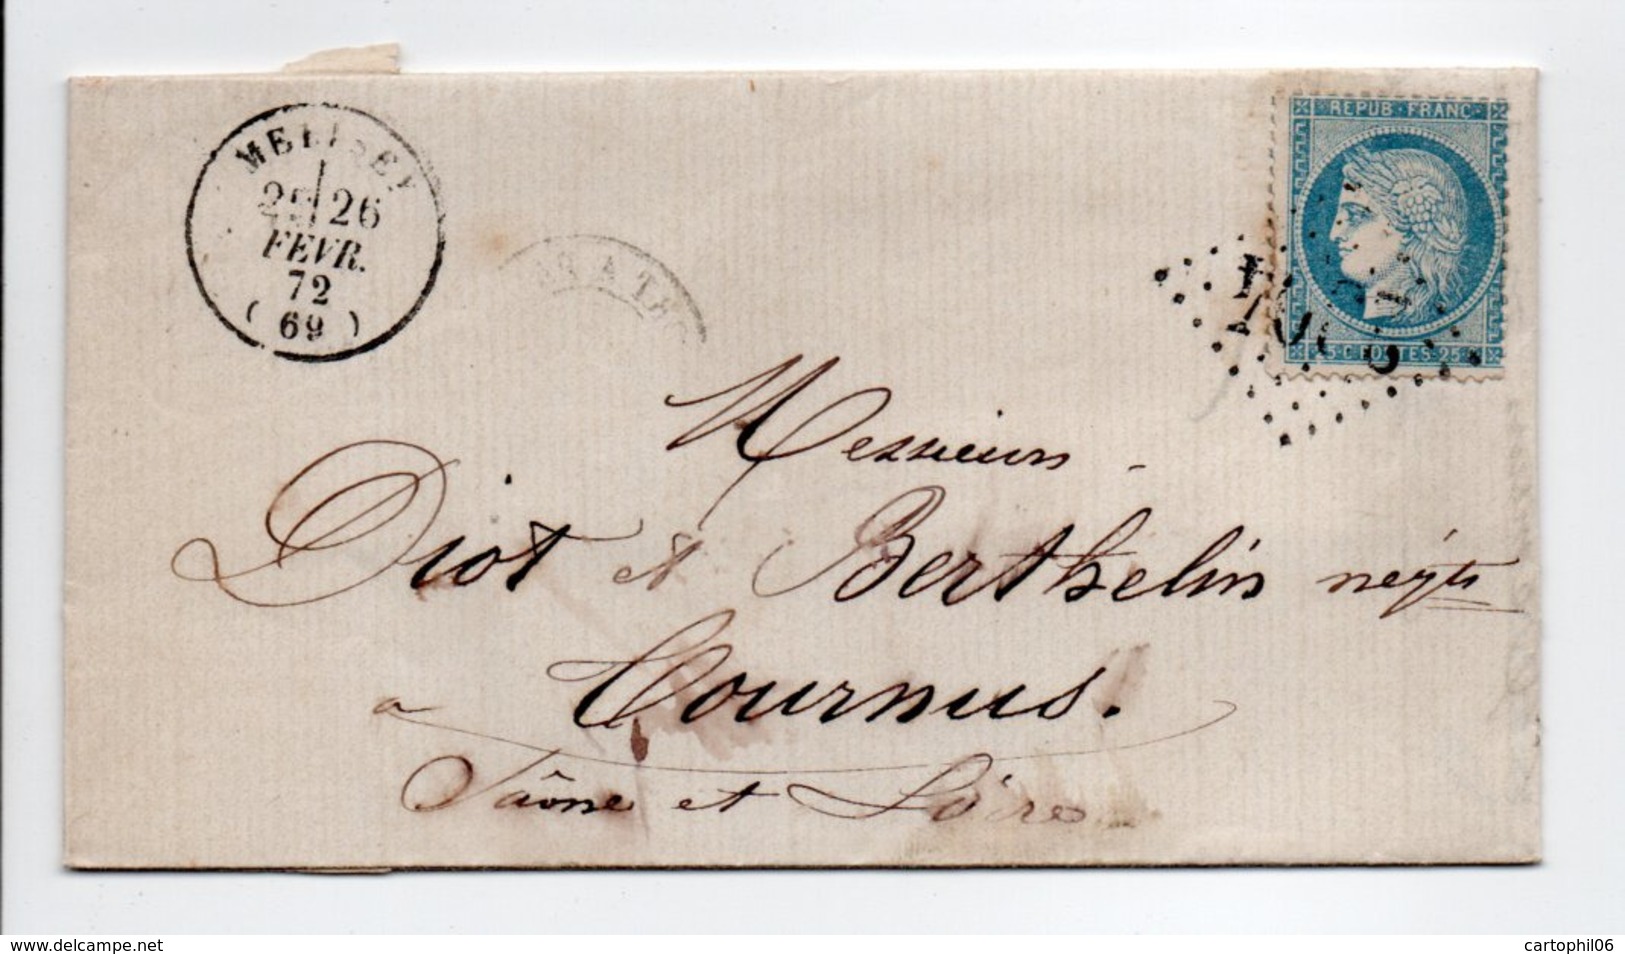 MELISEY
26
FEVR.
72
( 69 )
REPUB · FRANC
25 · C · POSTES · 25 · C
Messieurs
Diot et Berthelin négts
à Tournus.
Saône et Loire
www.delcampe.net
cartophil06